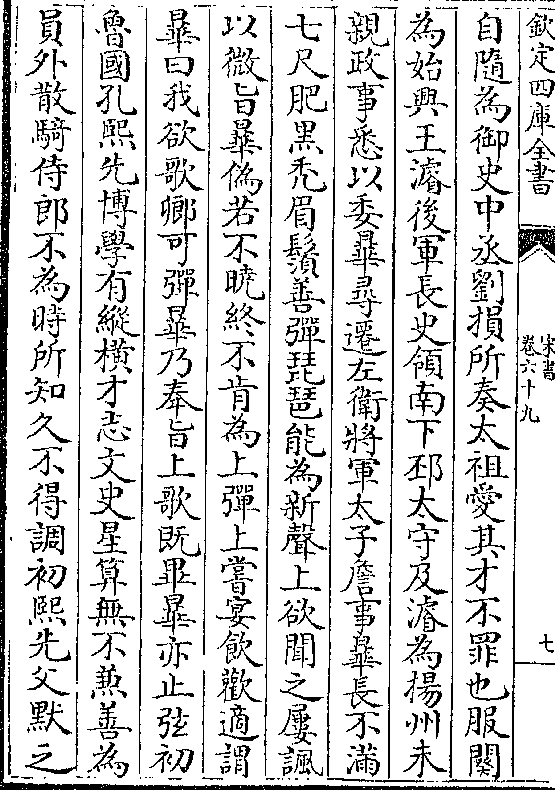 欽定四庫全書
宋書
卷六十九
七
自隨為御史中丞劉損所奏太祖愛其才不罪也服闋
為始興王濬後軍長史領南下邳太守及濬為揚州未
親政事悉以委曅尋遷左衛將軍太子詹事曅長不滿
七尺肥黑秃眉鬚善彈琵琶能為新聲上欲聞之屢諷
以微旨曅偽若不曉終不肯為上彈上嘗宴飲歡適謂
曅曰我欲歌卿可彈曅乃奉旨上歌既畢曅亦止弦初
魯國孔熙先博學有縱横才志文史星算無不兼善為
員外散騎侍郎不為時所知久不得調初熙先父默之